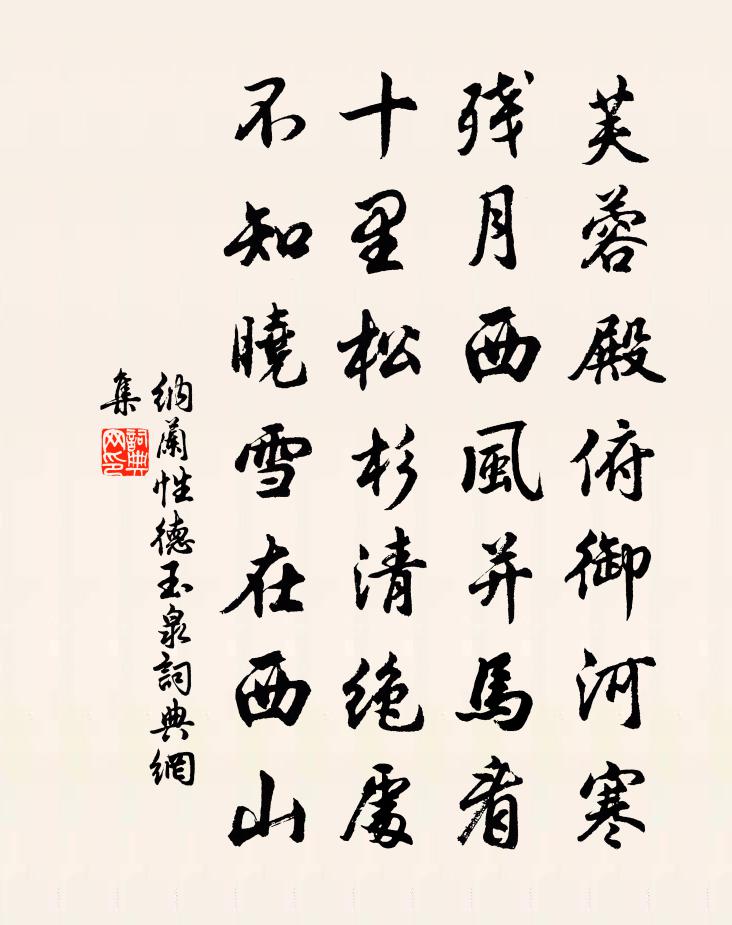 芙蓉殿俯御河寒
残月西風并馬看
十里松杉清絶處
不知曉雪在西山
納蘭性德玉泉詞典網
集
詞典网印